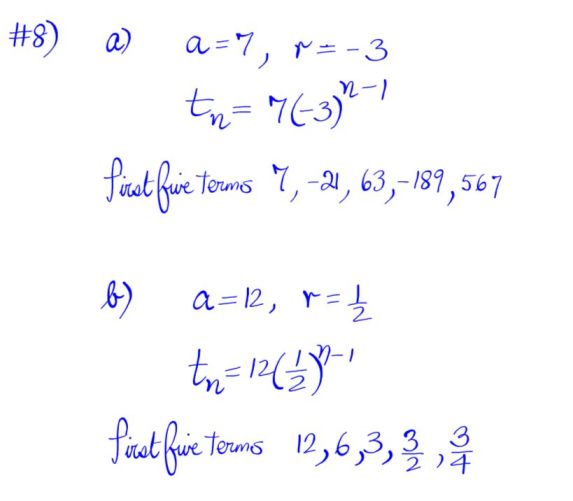 #8) a) a=7, r=-3
tₙ= 7(-3)ⁿ⁻¹
first five terms 7, -21, 63, -189, 567
b) a=12, r=1/2
tₙ=12(1/2)ⁿ⁻¹
first five terms 12, 6, 3, 3/2, 3/4